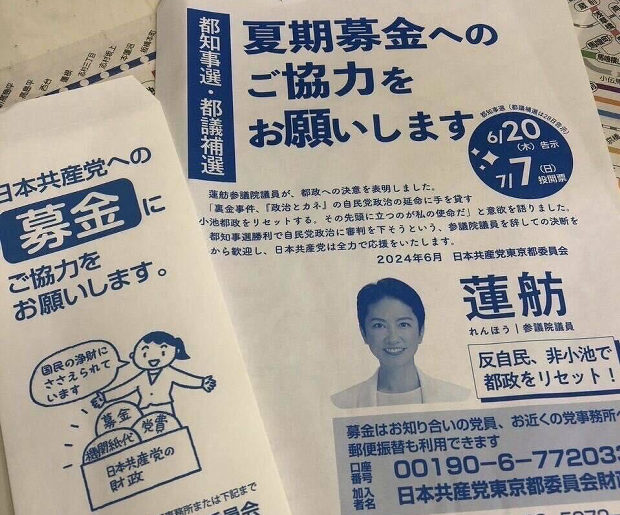 都知事選・都議補選
夏期募金への
ご協力を
お願いします
都知事選(都議補選は28日告示)
6/20
(木)告示
7/7
(日)
投開票
蓮舫参議院議員が、都政への決意を表明しました。
「裏金事件、『政治とカネ』の自民党政治の延命に手を貸す
小池都政をリセットする。その先頭に立つのが私の使命だ」と意欲を語りました。
都知事選勝利で自民党政治に審判を下そうという、参議院議員を辞しての決断を
から歓迎し、日本共産党は全力で応援をいたします。
2024年6月 日本共産党東京都委員会
蓮舫
れんほう|参議院議員
反自民、非小池で
都政をリセット!
募金はお知り合いの党員、お近くの党事務所へ
郵便振替も利用できます
口座
番号
00190-6-772033
加入
者名
日本共産党東京都委員会財
日本共産党への
募金に
ご協力を
お願いします。
国民の浄財に
ささえられて
います
募金
党費
機関紙代
日本共産党の
財政
事務所または下記まで